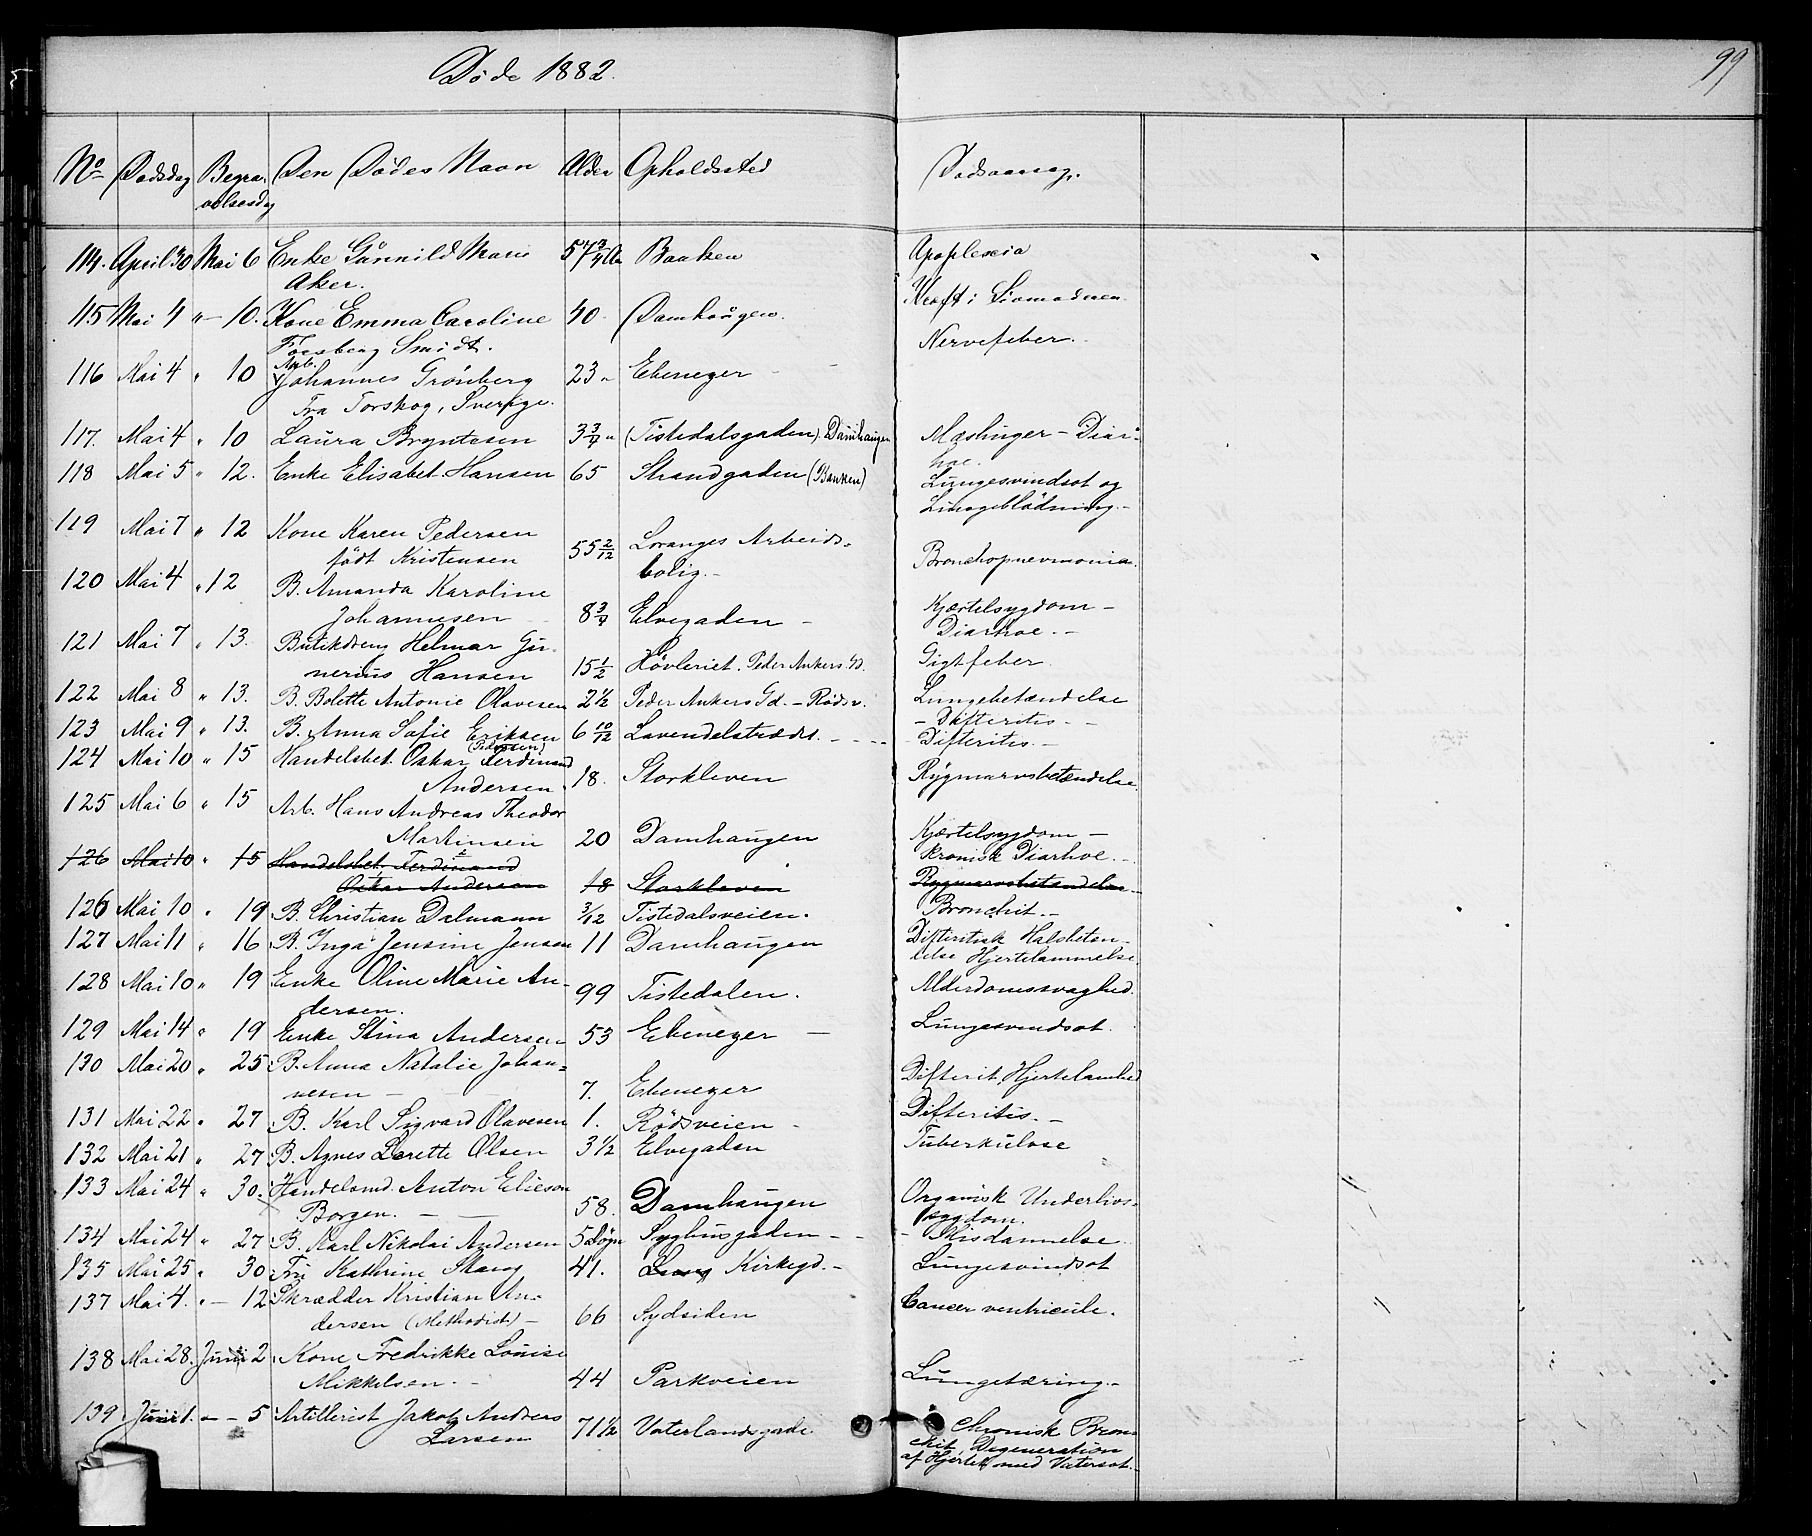 Døde 1882.
99
No Dødsdag Begra- Den Dødes Navn Alder Opholdssted Dødsaarsag.
velsesdag
114. April 30 Mai 6 Enke Gunnild Marie 57 3/4 Aar Banken Apoplexia
Aker.
115 Mai 4 " — 10. Kone Emma Caroline 40. Damhaugen. Kræft i Livmoderen
Forsberg Smidt.
116 Mai 4 " 10 Arb. Johannes Grönberg 23 " Ebenezer Nervefeber.
Fra Torskog, Sverige.
117. Mai 4 " 10 Laura Bryntesen 3 3/4 " (Tistedalsgaden) Damhaugen Mæslinger – Diar-
hoe.
118 Mai 5 " 12. Enke Elisabet Hansen 65 Strandgaden (Banken) Lungesvindsot og
Lungeblödning. –
119 Mai 7 " 12 Kone Karen Pedersen 55 2/12 Loranges Arbeids- Bronchopnevmonia.
født Kristensen bolig. –
120 Mai 4 " 12 B. Amanda Karoline
Johannesen 8 3/4 Elvegaden – Kjærtelsygdom –
Diarhoe. –
121 Mai 7 " 13. Butikdreng Helmar Gu-
nerius Hansen 15 1/2 Høvleriet. Peder Ankers Gd. Gigtfeber
122 Mai 8 " 13. B. Bolette Antonie Olavesen 2 1/2 Peder Ankers Gd. – Rødsv. Lungebetændelse
– Difteritis. –
123 Mai 9 " 13. B. Anna Sofie Eriksen 6 10/12 Lavendelstrædt. – Difteritis. –
(Pedersen)
124 Mai 10 " 15 Handelsbet. Oskar Ferdinand
Andersen. 18. Storkleven Rygmarvsbetændelse
125 Mai 6 " 15 Arb. Hans Andreas Theodor
Martinsen 20 Damhaugen Kjærtelsygdom –
kronisk Diarhoe. –
126 Mai 10 " 15 Handelsbet. Ferdinand
Oskar Andersen 18 Storkleven Rygmarvsbetændelse
126 Mai 10 " 19 B. Christian Dalmann 3/12 Tistedalsveien. Bronchit. –
127 Mai 11 " 16 B. Inga Jensine Jensen 11 Damhaugen Difteritisk Halsbetæn-
delse Hjertelammelse.
128 Mai 10 " 19 Enke Oline Marie An-
dersen. 99 Tistedalen. Alderdomssvaghed.
129 Mai 14 " 19 Enke Stina Andersen 53 Ebenezer – Lungesvindsot.
130 Mai 20 " 25 B. Anna Natalie Johan-
nesen – 7. Ebenezer Difterit, Hjertelamhed
131 Mai 22 " 27 B. Karl Sigvard Olavesen 1. Rödsveien – Difteritis. –
132 Mai 21 " 27 B. Agnes Lorette Olsen 3 1/2 Elvegaden Tuberkulose
133 Mai 24 " 30. Handelsmd. Anton Elieson
Borgen. – 58. Damhaugen Organisk Underlivs-
sygdom.
134 Mai 24 " 27 B. Karl Nikolai Andersen 5 Døgn Syghusgaden – – Misdannelse.
135 Mai 25 " 30 Fru Kathrine Stang 41. Lang Kirkegd. – Lungesvindsot
137 Mai 4. " — 12 Skrædder Kristian An-
dersen (Methodist) – 66 Sydsiden Cancer ventricule.
138 Mai 28. Juni 2 Kone Fredrikke Louise
Mikkelsen. – 44 Parkveien Lungetæring. –
139 Juni 1. — – 5 Artillerist Jakob Andreas
Larsen 71 1/2 Vaterlandsgade Chronisk Bron-
chit, Degeneration
af Hjertet, med Vatersot. –